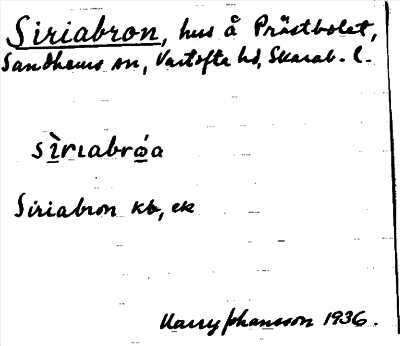 Siriabron, hus å Prästbolet,
Sandhems sn, Vartofta hd, Skarab. l.
sìrɩabrǿa
Siriabron kb, ek
Harry Johansson 1936.